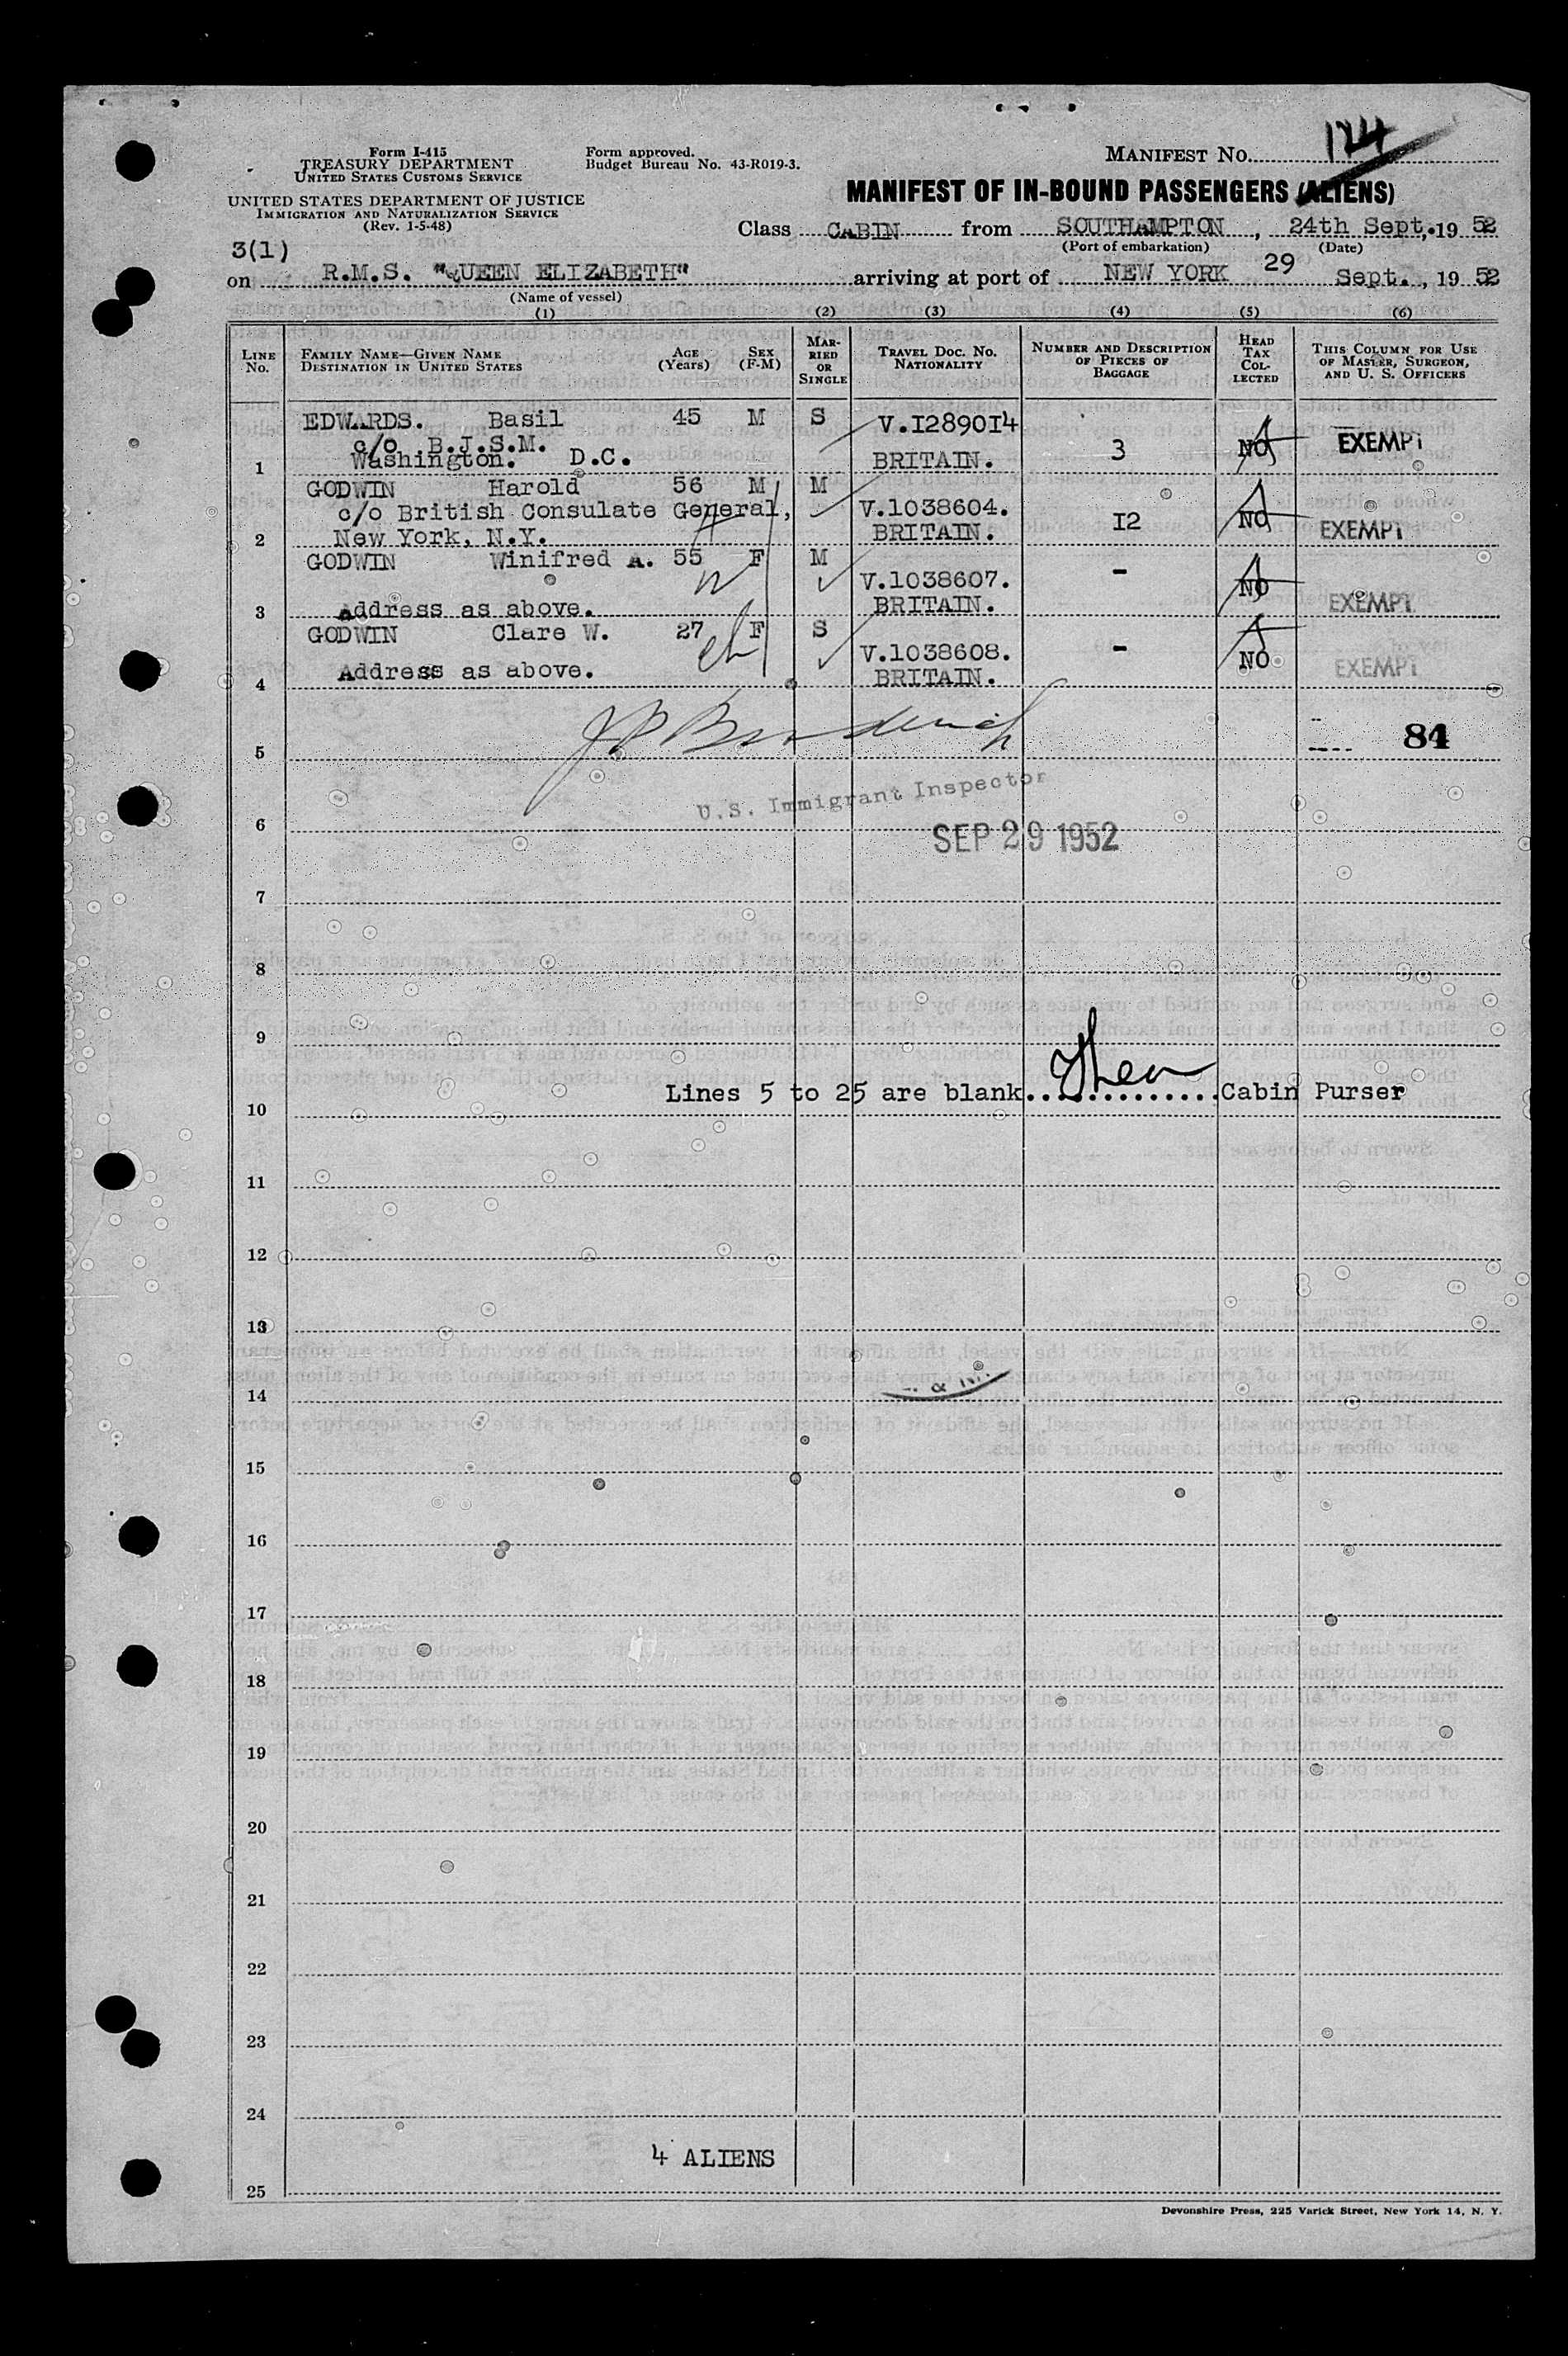 Form I-415
TREASURY DEPARTMENT
UNITED STATES CUSTOMS SERVICE
UNITED STATES DEPARTMENT OF JUSTICE
IMMIGRATION AND NATURALIZATION SERVICE
(Rev. 1-5-48)
Form approved.
Budget Bureau No. 43-R019-3.
MANIFEST NO. 124
MANIFEST OF IN-BOUND PASSENGERS (ALIENS)
Class CABIN from SOUTHAMPTON, 24th Sept, 19 52
(Port of embarkation) (Date)
3(1)
on R.M.S. "QUEEN ELIZABETH" arriving at port of NEW YORK 29 Sept., 19 52
(Name of vessel)
(1) (2) (3) (4) (5) (6)
LINE No. FAMILY NAME—GIVEN NAME DESTINATION IN UNITED STATES AGE (Years) SEX (F-M) MARRIED OR SINGLE TRAVEL DOC. NO. NATIONALITY NUMBER AND DESCRIPTION OF PIECES OF BAGGAGE HEAD TAX COLLECTED THIS COLUMN FOR USE OF MASTER, SURGEON, AND U. S. OFFICERS
EDWARDS. Basil 45 M S V.1289014
c/o B.J.S.M. 3 NO EXEMPT
1 Washington. D.C. BRITAIN.
GODWIN Harold 56 M M
c/o British Consulate General, V.1038604. 12 NO EXEMPT
2 New York, N.Y. BRITAIN.
GODWIN Winifred A. 55 F M
V.1038607. - NO
3 Address as above. BRITAIN. EXEMPT
GODWIN Clare W. 27 F S
V.1038608. - NO EXEMPT
4 Address as above. BRITAIN.
5 84
U.S. Immigrant Inspector
6 SEP 29 1952
7
8
9
Lines 5 to 25 are blank.............Cabin Purser
10
11
12
13
14
15
16
17
18
19
20
21
22
23
24
4 ALIENS
25
Devonshire Press, 225 Varick Street, New York 14, N. Y.